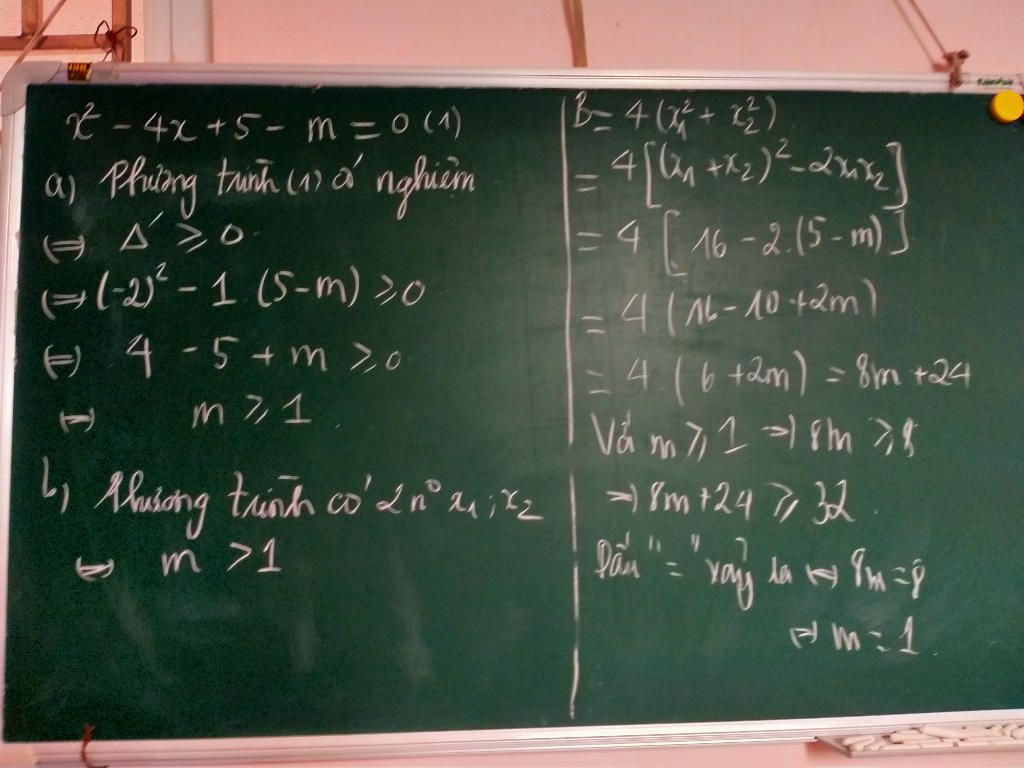 x² - 4x + 5 - m = 0 (1)
a) Phương trình (1) có nghiệm
⇔ Δ' ≥ 0
⇔ (-2)² - 1 (5-m) ≥ 0
⇔ 4 - 5 + m ≥ 0
⇔ m ≥ 1
b) Phương trình có 2 n⁰ x₁; x₂
⇔ m > 1
B = 4 (x₁² + x₂²)
= 4 [(x₁ + x₂)² - 2x₁x₂]
= 4 [16 - 2.(5-m)]
= 4 (16 - 10 + 2m)
= 4. (6 + 2m) = 8m + 24
Vả m ≥ 1 ⇒ 8m ≥ 8
⇒ 8m + 24 ≥ 32
Dấu "=" xảy ra ⇔ 8m = 8
⇔ m = 1